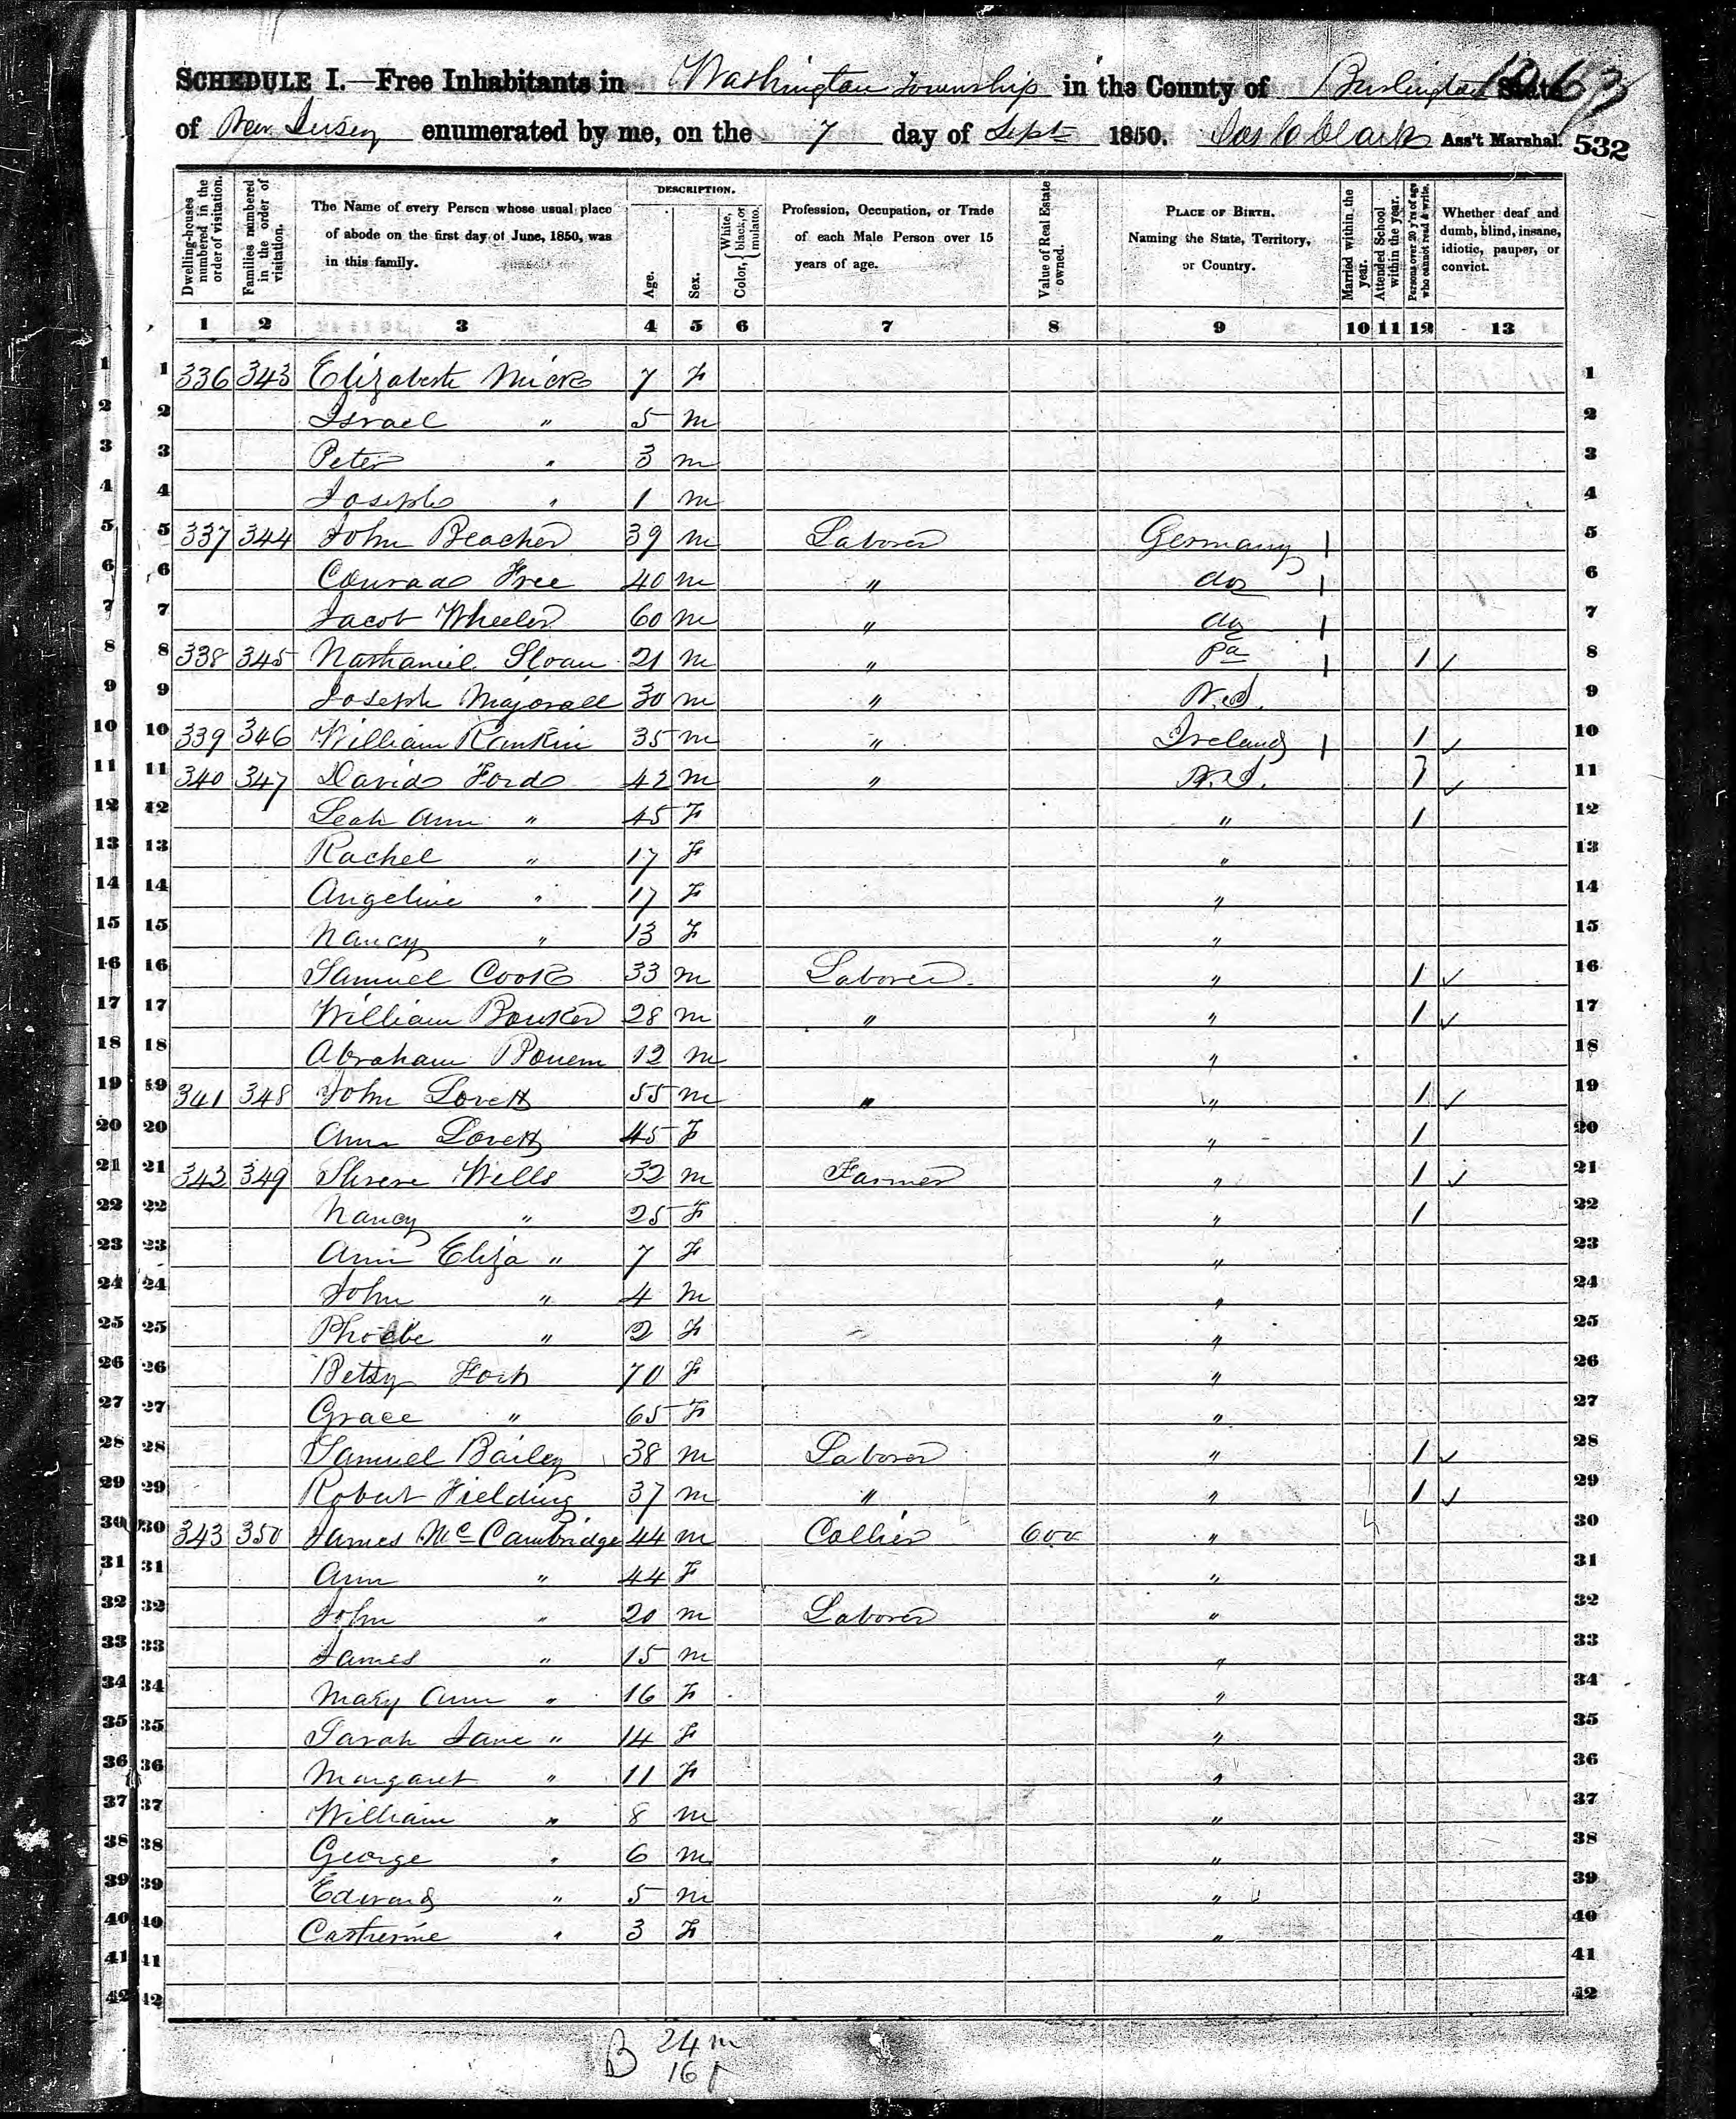 1063
SCHEDULE I.—Free Inhabitants in Washington Township in the County of Burlington State
of New Jersey enumerated by me, on the 7 day of Sept 1850. Clark Ass't Marshal. 532
Dwelling-houses numbered in the order of visitation. Families numbered in the order of visitation. The Name of every Person whose usual place of abode on the first day of June, 1850, was in this family. DESCRIPTION. Age. Sex. Color, { White, black, or mulatto. Profession, Occupation, or Trade of each Male Person over 15 years of age. Value of Real Estate owned. PLACE OF BIRTH. Naming the State, Territory, or Country. Married within the year. Attended School within the year. Persons over 20 y'rs of age who cannot read & write. Whether deaf and dumb, blind, insane, idiotic, pauper, or convict.
1 2 3 4 5 6 7 8 9 10 11 12 13
1 1 336 343 Elizabeth Mick 7 F 1
2 2 Israel " 5 M 2
3 3 Peter " 3 M 3
4 4 Joseph " 1 M 4
5 5 337 344 John Beacher 39 M Laborer Germany 1 5
6 6 Conrad Free 40 M " do 1 6
7 7 Jacob Wheeler 60 M " do 1 7
8 8 338 345 Nathaniel Sloan 21 M " Pa 1 1 ✓ 8
9 9 Joseph Majorall 30 M " N.J. 9
10 10 339 346 William Rankin 35 M " Ireland 1 1 ✓ 10
11 11 340 347 David Ford 42 M " N.J. 1 ✓ 11
12 12 Leah Ann " 45 F " 1 12
13 13 Rachel " 17 F " 13
14 14 Angeline " 17 F " 14
15 15 Nancy " 13 F " 15
16 16 Samuel Cook 33 M Laborer " 1 ✓ 16
17 17 William Bowker 28 M " " 1 ✓ 17
18 18 Abraham 12 M " 18
19 19 341 348 John Lovett 55 M " " 1 ✓ 19
20 20 Ann Lovett 45 F " 1 20
21 21 342 349 Shreve Wells 32 M Farmer " 1 ✓ 21
22 22 Nancy " 25 F " 1 22
23 23 Ann Eliza " 7 F " 23
24 24 John " 4 M " 24
25 25 Phoebe " 2 F " 25
26 26 Betsy 70 F " 26
27 27 Grace " 65 F " 27
28 28 Samuel Bailey 38 M Laborer " 1 ✓ 28
29 29 Robert Fielding 37 M " " 1 ✓ 29
30 30 343 350 James McCambridge 44 M Collier 600 " 30
31 31 Ann " 44 F " 31
32 32 John " 20 M Laborer " 32
33 33 James " 15 M " 33
34 34 Mary Ann " 16 F " 34
35 35 Sarah Jane " 14 F " 35
36 36 Margaret " 11 F " 36
37 37 William " 8 M " 37
38 38 George " 6 M " 38
39 39 Edward " 5 M " 39
40 40 Catherine " 3 F " 40
41 41 41
42 42 42
B 24 m
16 f